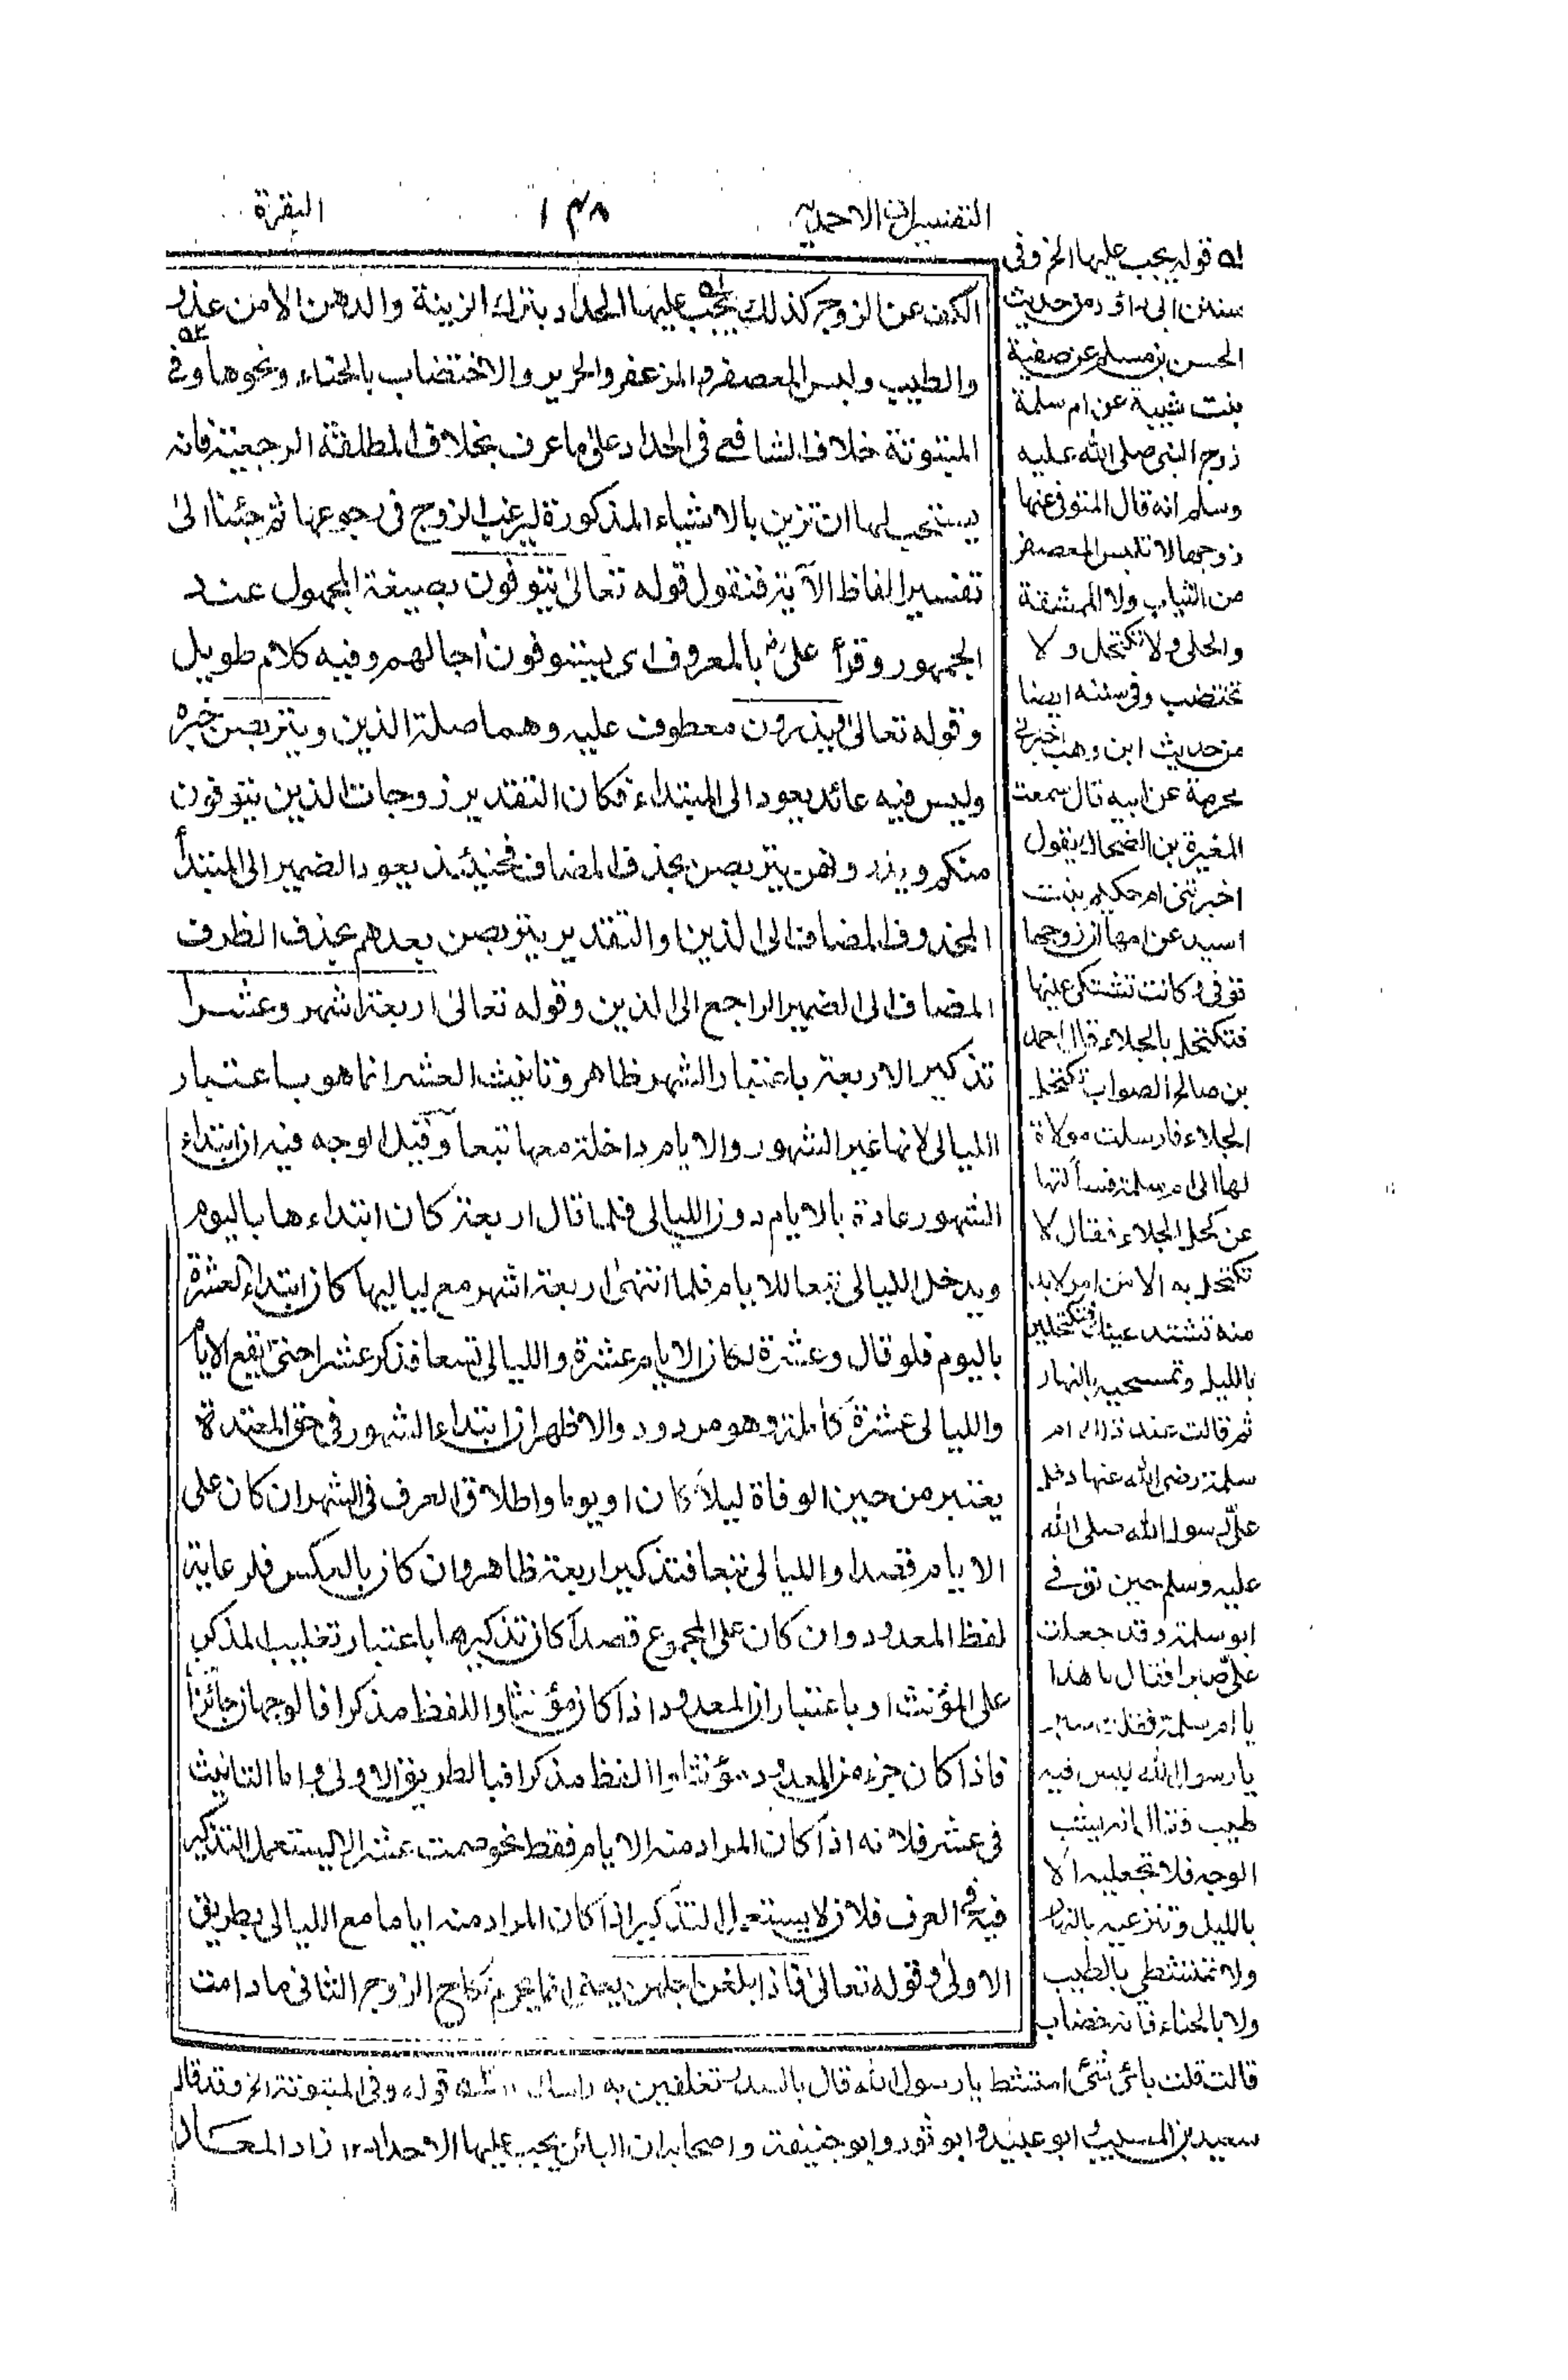 التفسيرات الاحمدية
١٤٨
البقرة
الكف عن الزوج كذلك يجب عليها الحداد بترك الزينة والدهن الا من عذر
والطيب ولبس المعصفر والمزعفر والحرير والاختضاب بالحناء ونحوها وفى
المبتوتة خلاف الشافعى فى الحداد على ما عرف بخلاف المطلقة الرجعية فانه
يستحب لها ان تزين بالاشياء المذكورة ليرغب الزوج فى رجوعها ثم جئنا الى
تفسير الفاظ الآية فنقول قوله تعالى يتوفون بصيغة المجهول عند
الجمهور وقرأ على رض بالمعروف اى يستوفون اجالهم وفيه كلام طويل
وقوله تعالى ويذرون معطوف عليه وهما صلة الذين ويتربصن خبره
وليس فيه عائد يعود الى المبتداء فكان التقدير زوجات الذين يتوفون
منكم ويذرونهن يتربصن بحذف المضاف فحينئذ يعود الضمير الى المبتدأ
المحذوف المضاف الى الذين او التقدير يتربصن بعدهم بحذف الظرف
المضاف الى الضمير الراجع الى الذين وقوله تعالى اربعة اشهر وعشرا
تذكير الاربعة باعتبار الشهر ظاهر وتانيث العشر انما هو باعتبار
الليالى لانها غير الشهور والايام داخلة معها تبعا وقيل الوجه فيه ان ابتداء
الشهور عادة بالايام دون الليالى فلما قال اربعة كان ابتداءها باليوم
ويدخل الليالى تبعا للايام فلما انتهى اربعة اشهر مع لياليها كان ابتداء العشرة
باليوم فلو قال وعشرة لكان الايام عشرة والليالى تسعا فذكر عشرا حتى يقع الايام
والليالى عشرة كاملة وهو مردود والاظهر ان ابتداء الشهور فى حق المعتدة
يعتبر من حين الوفاة ليلا كان او يوما واطلاق العرف فى الشهر ان كان على
الايام قصدا والليالى تبعا فتذكير اربعة ظاهر وان كان بالعكس فلرعاية
لفظ المعدود وان كان على المجموع قصدا كان تذكيرها باعتبار تغليب المذكر
على المؤنث او باعتبار ان المعدود اذا كان مؤنثا واللفظ مذكرا فالوجهان جائزا
فاذا كان جزء من المعدود مؤنثا واللفظ مذكرا فبالطريق الاولى واما التانيث
فى عشر فلانه اذا كان المراد منه الايام فقط نحو صمت عشرا لا يستعمل التذكير
فيه فى العرف فلان لا يستعمل التذكير اذا كان المراد منه اياما مع الليالى بطريق
الاولى وقوله تعالى فاذا بلغن اجلهن يعنى انما يحرم نكاح الزوج الثانى ما دامت
له قوله يجب عليها الخ وفى
سنن ابى داؤد من حديث
الحسن بن مسلم عن صفية
بنت شيبة عن ام سلمة
زوج النبى صلى الله عليه
وسلم انه قال المتوفى عنها
زوجها لا تلبس المعصفر
من الثياب ولا الممشقة
والحلى ولا تكتحل ولا
تختضب وفى سننه ايضا
من حديث ابن وهب اخبرنى
مخرمة عن ابيه قال سمعت
المغيرة بن الضحاك يقول
اخبرتنى ام حكيم بنت
اسيد عن امها ان زوجها
توفى وكانت تشتكى عينها
فتكتحل بالجلاء قال احمد
بن صالح الصواب تكتحل
الجلاء فارسلت مولاة
لها الى ام سلمة فسألتها
عن كحل الجلاء فقال لا
تكتحل به الا من امر لابد
منه تشتد عينك فتكتحلين
بالليل وتمسحيه بالنهار
ثم قالت عند ذلك ام
سلمة رضى الله عنها دخل
على رسول الله صلى الله
عليه وسلم حين توفى
ابو سلمة وقد جعلت
على صبرا فقال ما هذا
يا ام سلمة فقلت صبر
يا رسول الله ليس فيه
طيب فقال انه يشب
الوجه فلا تجعليه الا
بالليل وتنزعيه بالنهار
ولا تمتشطى بالطيب
ولا بالحناء فانه خضاب
قالت قلت باى شئ امتشط يا رسول الله قال بالسدر تغلفين به راسك ١٢ ٢ه قوله وفى المبتوتة الخ وقد قال
سعيد بن المسيب وابو عبيد وابو ثور وابو حنيفة واصحابه ان البائن يجب عليها الاحداد ١٢ زاد المعاد